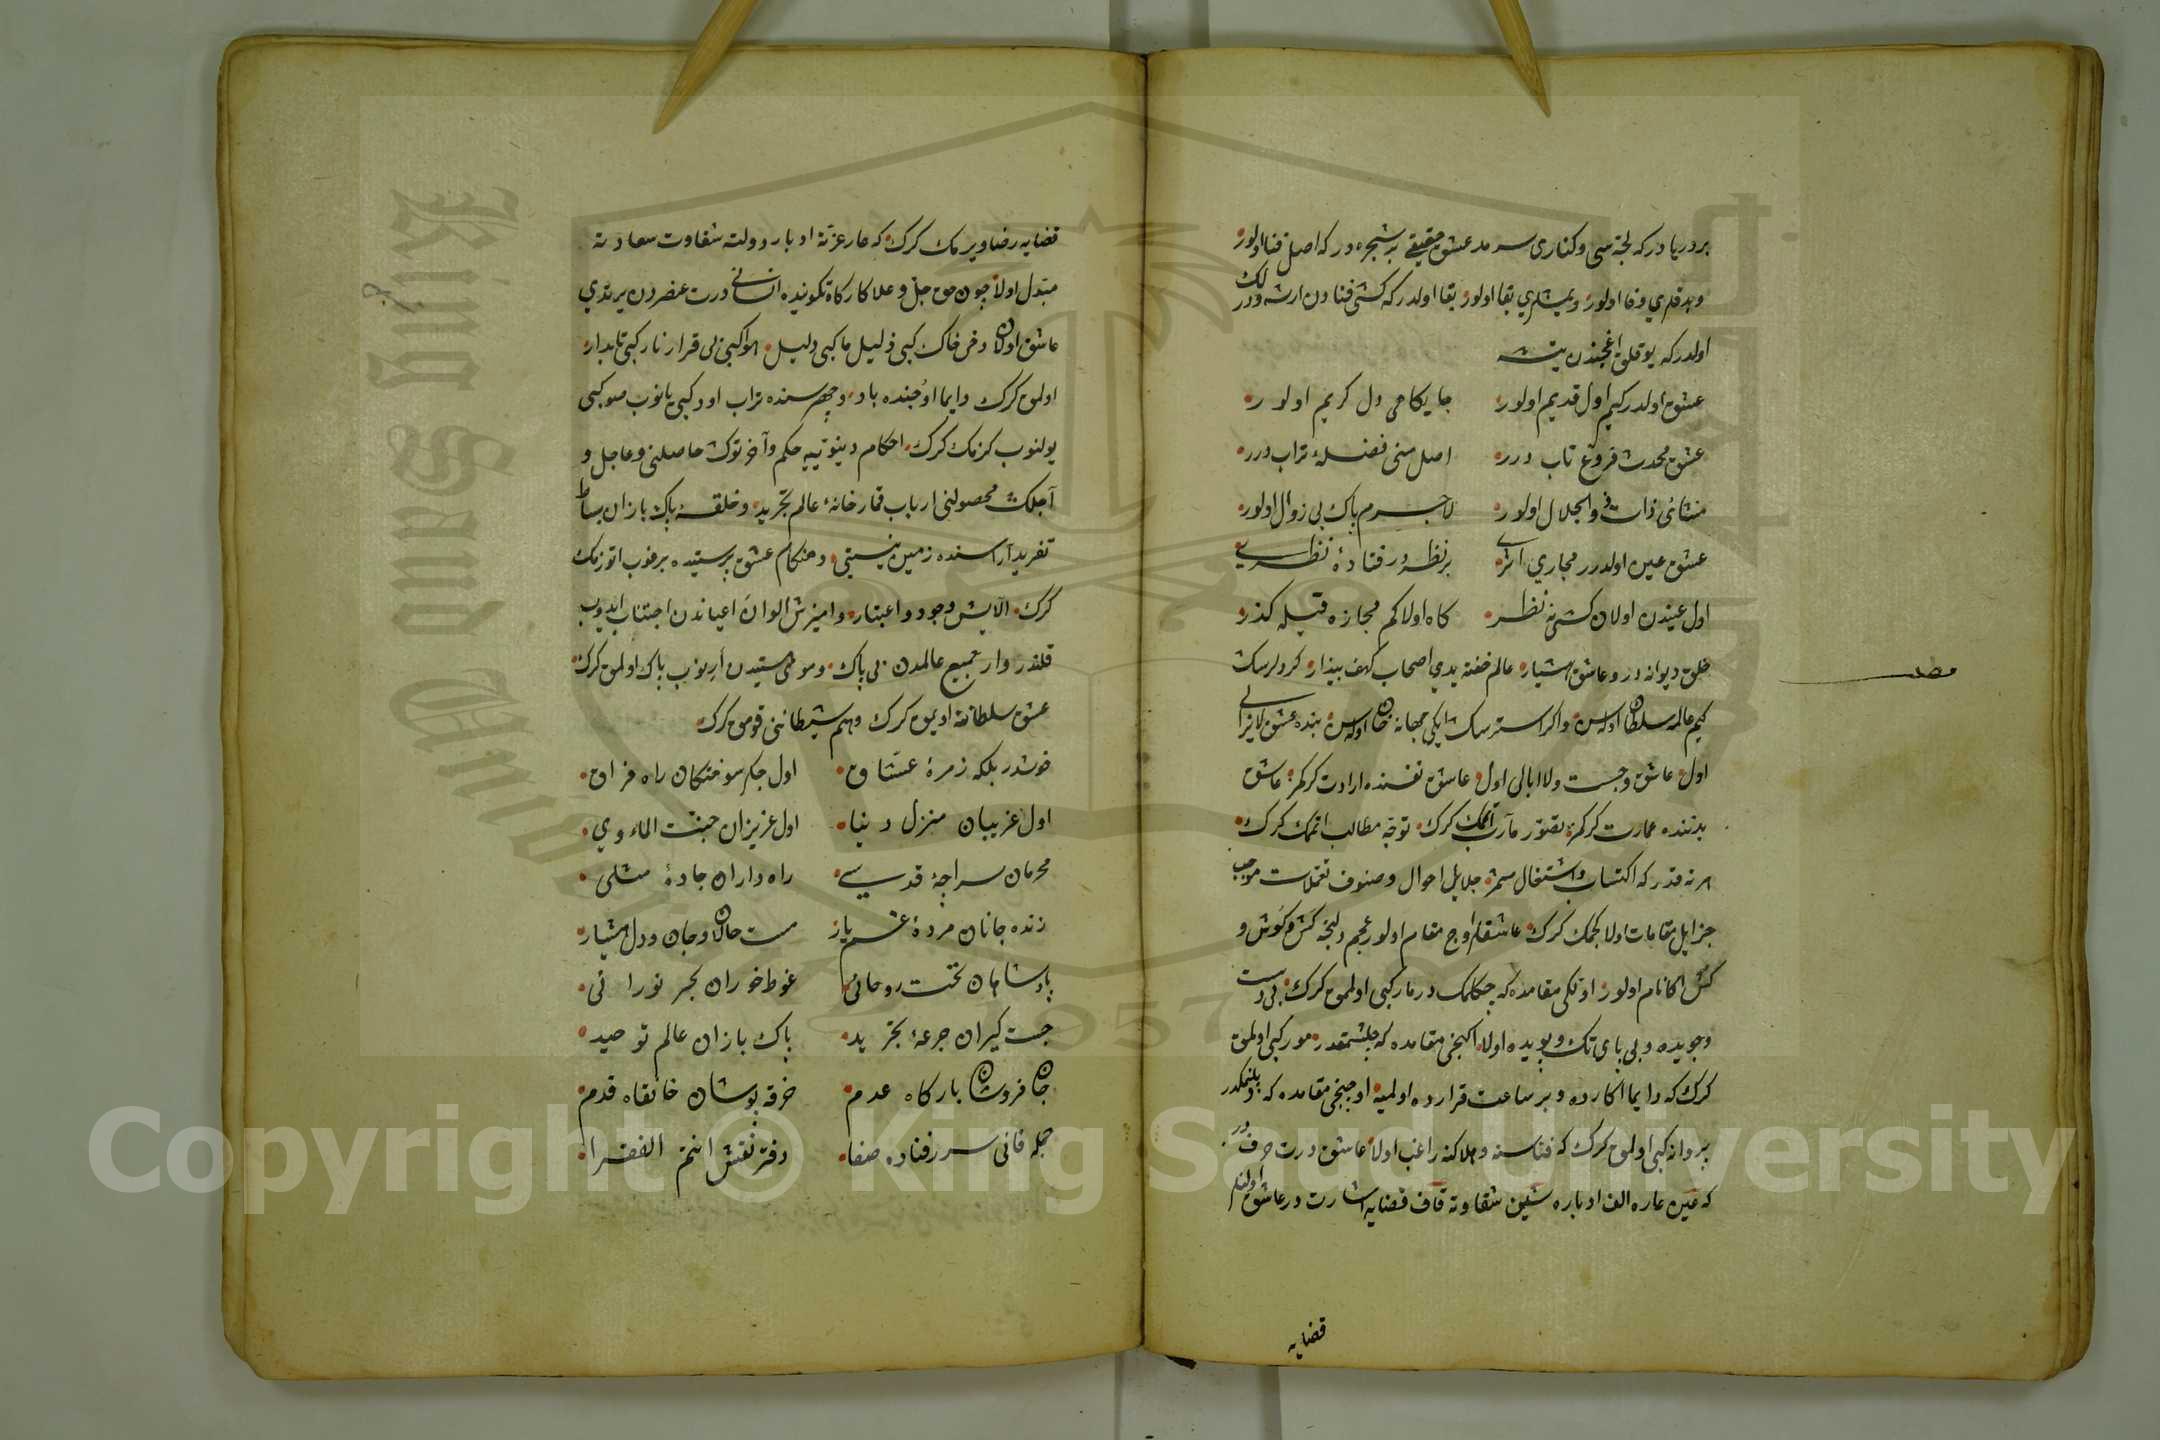 بر دریا درکه لجۀ سی و کناری سرمد عشق حقیقی بر شجره در که اصل فنا اولور
اولدر که یوقلق اغجندن یتشه
عشق اولدر کیم اول قدیم اولور جایکاهی دل کریم اولور
عشق محدث فروغ تاب درر اصل منی فضلۀ تراب درر
منتائی ذات ذو الجلال اولور لاجرم پاک بی زوال اولور
عشق عین اولدرر مجازی اثری بر نظر در فتادۀ نظری
اول عیندن اولان کشی نه نظر کاه اولا کم مجازه قیله کذر
خلق دیوانه در و عاشق هشیار عالم خفته یدی اصحاب کهف بیدار کر دلرسک
کیم عالمه سلطان اولاسن و اکر استرسک ایکی جهانه خان اولاسن بنده عشق لایزالی
اول عاشق و جست و لاابالی اول عاشق نفسنده ارادت کرکمز عاشق
بدننده عمارت کرکمز تصور مآرب اتمک کرک توجه مطالب اتمک کرک
هر نه قدر که اکتساب و اشتغال مثمر جلایل احوال و صنوف تعملات موجب
جزایل مقامات اولا کچمک کرک عاشقلر اوج مقام اولور عجم دلنجه کش و کوش و
کش اکا نام اولور اولکی مقامده که چکلمک در مار کبی اولمق کرک بی دست
و جویده و بی پای تک و پویده اولا ایکنجی مقامده که چلشمقدر مور کبی اولمق
کرک که دایما اکارده و بر ساعت قرارده اولمیه اوچنجی مقامده که
پروانه کبی اولمق کرک که فناسنه و هلاکنه راغب اولا عاشق درت حرفدر
که عین عاره الف ادباره شین شقاوته قاف قضایه اشارت در عاشق اولنلر
قضایه
قضایه رضا ویرمک کرک که عار عزته ادبار دولته شقاوت سعادته
مبدل اولا چون حق جل و علا کارکاه تکوینده انسانی درت عنصردن یرتدی
عاشق اولان دخی خاک کبی ذلیل ما کبی دلیل هوا کبی بی قرار نار کبی تابدار
اولمق کرک دایما اوجنده باد و چهرسنده تراب اود کبی یانوب صو کبی
یولنوب کزمک کرک احکام دنیوییه حکم و آخرتوک حاصلنی و عاجل و
آجلک محصولنی ارباب قمار خانۀ عالم تجرید و خلقۀ پاک بازان بساط
تفرید آراسنده زمین نیستی و هنکام عشق پرستیده بر غوب اتوزمک
کرک الایش وجود و اعتبار و امیزش الوان اعیاندن اجتناب ایدوب
قلندر وار جمیع عالمدن بی باک و موهستیدن اریوب پاک اولمق کرک
عشق سلطاننه اویمق کرک وهم شیطاننی قومق کرک
خوشدر بلکه زمرۀ عشاق اول جکر سوختکان راه فراق
اول غریبان منزل دنیا اول عزیزان جنت المأوی
محرمان سراجۀ قدسی راه داران جادۀ مثلی
زنده جانان مردۀ غم یار مست حالان و جان و دل هشیار
پادشاهان تخت روحانی غوطه خوران بحر نورانی
جست کیران جرعۀ تجرید پاک بازان عالم توحید
جان فروشان بارکاه عدم خرقه پوشان خانقاه قدم
جمله فانی سر زفتاده صفا دفتر نقش انتم الفقرا